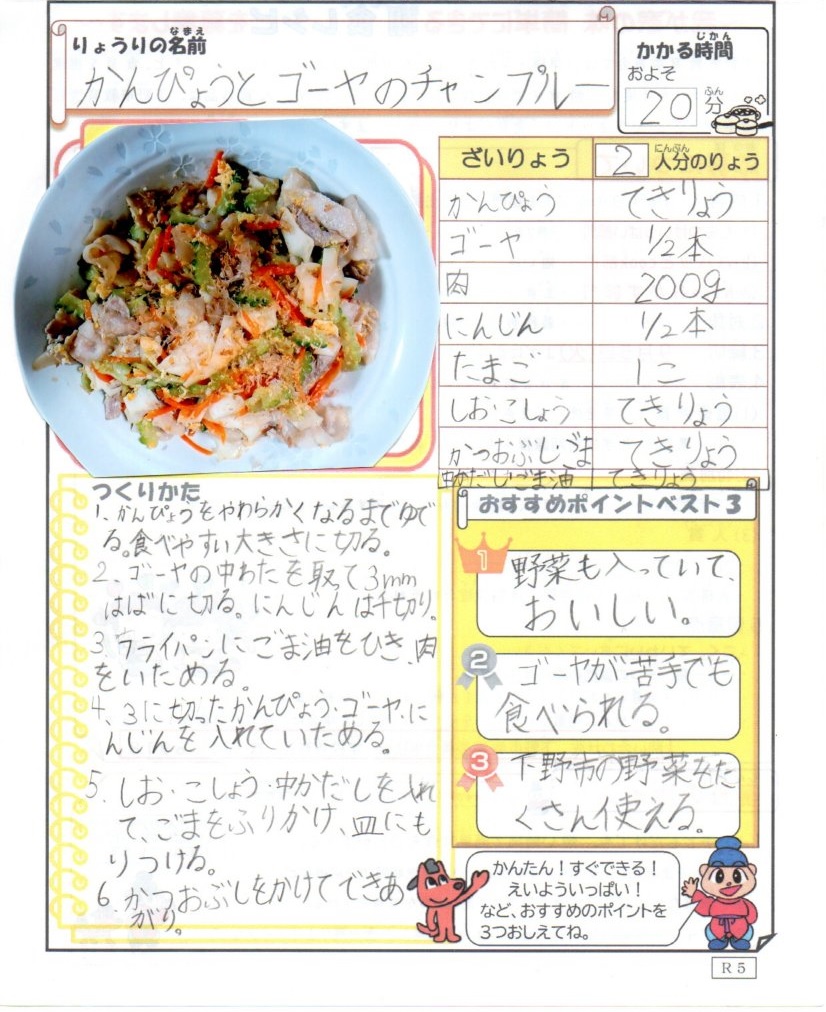 りょうりの名前
なまえ
かんぴょうとゴーヤのチャンプルー
かかる時間
じかん
およそ
20分
ふん
ざいりょう 2人分のりょう
にんぶん
かんぴょう てきりょう
ゴーヤ 1/2本
肉 200g
にんじん 1/2本
たまご 1こ
しお・こしょう てきりょう
かつおぶし・ごま てきりょう
中かだし・ごま油 てきりょう
つくりかた
1、かんぴょうをやわらかくなるまでゆで
る。食べやすい大きさに切る。
2、ゴーヤの中わたを取って3mm
はばに切る。にんじんは千切り。
3、フライパンにごま油をひき、肉
をいためる。
4、3に切ったかんぴょう・ゴーヤ・に
んじんを入れていためる。
5、しお・こしょう・中かだしを入れ
て、ごまをふりかけ、皿にも
りつける。
6、かつおぶしをかけてできあ
がり。
おすすめポイントベスト3
1
野菜も入っていて、
おいしい。
2
ゴーヤが苦手でも
食べられる。
3
下野市の野菜をた
くさん使える。
かんたん！すぐできる！
えいよういっぱい！
など、おすすめのポイントを
3つおしえてね。
R5